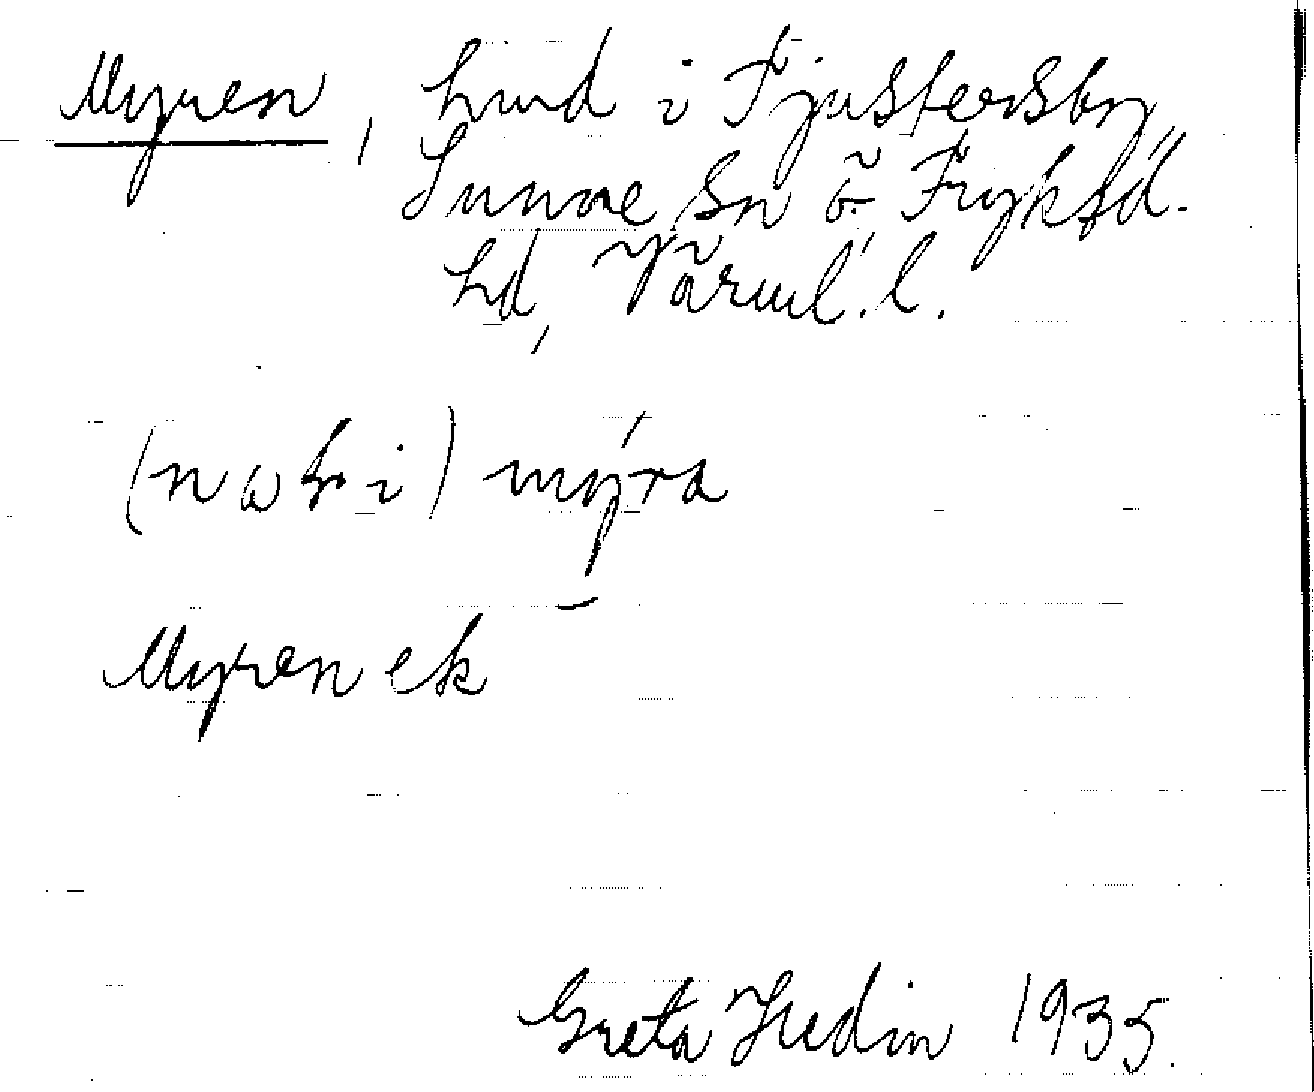 Myren, hmd i Fjustersby,
Sunne sn Ö. Fryksd.
hd, Värml. l.
(nɷhri) mýra
Myren ek
Greta Hedin 1935.